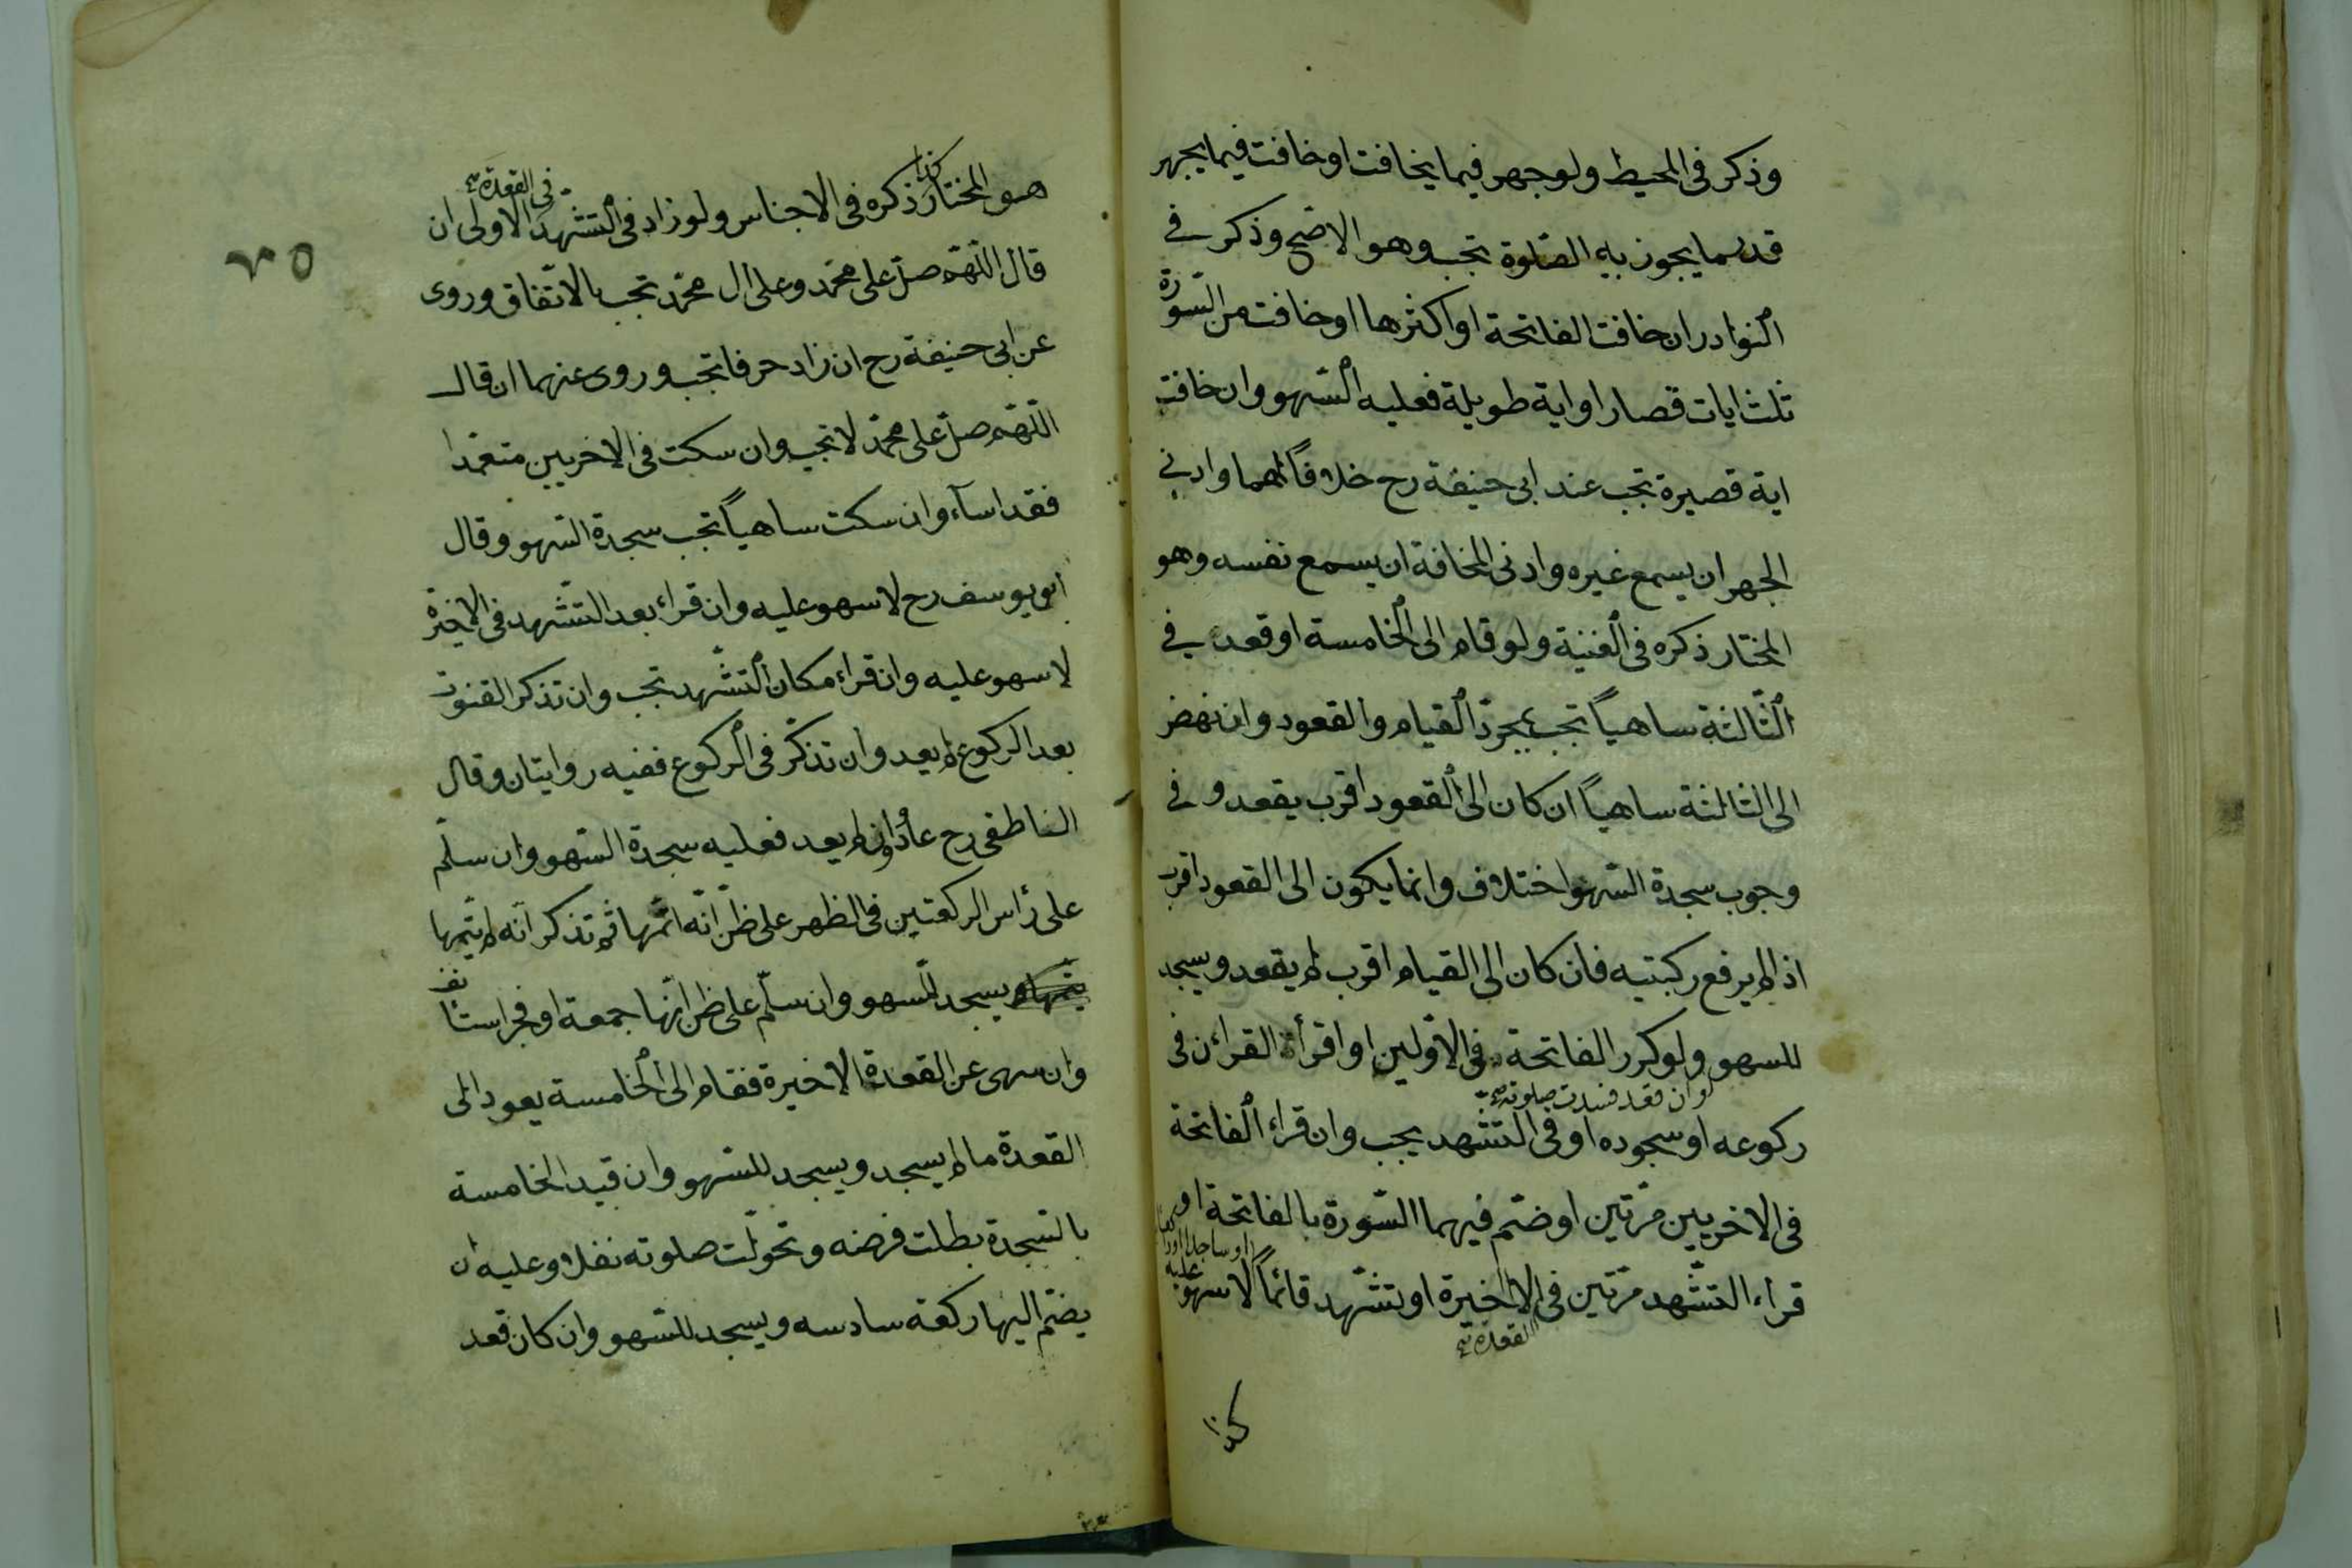 وذكر فى المحيط ولو جهر فيما يخافت او خافت فيما يجهر
قدر ما يجوز به الصّلوة تجب وهو الاصّح وذكر فى
النوادر ان خافت الفاتحة او اكثرها او خافت من السّورة
ثلث ايات قصار او اية طويلة فعليه السّهو وان خافت
اية قصيرة تجب عند ابى حنيفة رح خلافاً لهما وادنى
الجهر ان يسمع غيره وادنى المخافة ان يسمع نفسه وهو
المختار ذكره فى الغنية ولو قام الى الخامسة او قعد فى
الثّالثة ساهياً تجب بمجرّد القيام والقعود وان نهض
الى الثالثة ساهياً ان كان الى القعود اقرب يقعد وفى
وجوب سجدة السّهو اختلاف وانما يكون الى القعود اقرب
اذا لم يرفع ركبتيه فان كان الى القيام اقرب لم يقعد ويسجد
للسهو ولو كرر الفاتحة فى الاوّلين او اقرأة القراءن فى
او ان قعد فسدت صلوته صح
ركوعه او سجوده او فى التشّهد يجب وان قراء الفاتحة
فى الاخريين مرّتين او ضّم فيهما السّورة بالفاتحة او
او ساجدا او راكعا
قراء التشّهد مرّتين فى الاخيرة او تشّهد قائماً لا سهو عليه
القعدة صح
كذا
٧٥
كذا
فى القعدة صح
هو المختار ذكره فى الاجناس ولو زاد فى التشّهد الاولى ان
قال اللّهّم صلّ على محمّد وعلى ال محمّد تجب بالاتّفاق وروى
عن ابى حنيفة رح ان زاد حرفا تجب وروى عنهما ان قال
اللّهّم صلّ على محمّد لا تجب وان سكت فى الاخريين متعمّدا
فقد اسآء وان سكت ساهياً تجب سجدة السّهو وقال
ابو يوسف رح لا سهو عليه وان قراء بعد التشّهد فى الاخيرة
لا سهو عليه وان قراء مكان التشّهد تجب وان تذكر القنوت
بعد الركوع لم يعد وان تذكّر فى الركوع ففيه روايتان وقال
الناطفى رح عاد او لم يعد فعليه سجدة السّهو وان سلّم
على رأس الركعتين فى الظهر على ظنّ انّه اتمّها ثم تذكر انّه لم يتّمها
يتّمها ويسجد للسّهو وان سلّم على ظن انّها جمعة او فجر استأنف
وان سهى عن القعدة الاخيرة فقام الى الخامسة يعود الى
القعدة ما لم يسجد ويسجد للسّهو وان قيد الخامسة
بالسّجدة بطلت فرضه وتحوّلت صلوته نفلا وعليه ان
يضّم اليها ركعة سادسه ويسجد للسّهو وان كان قعد